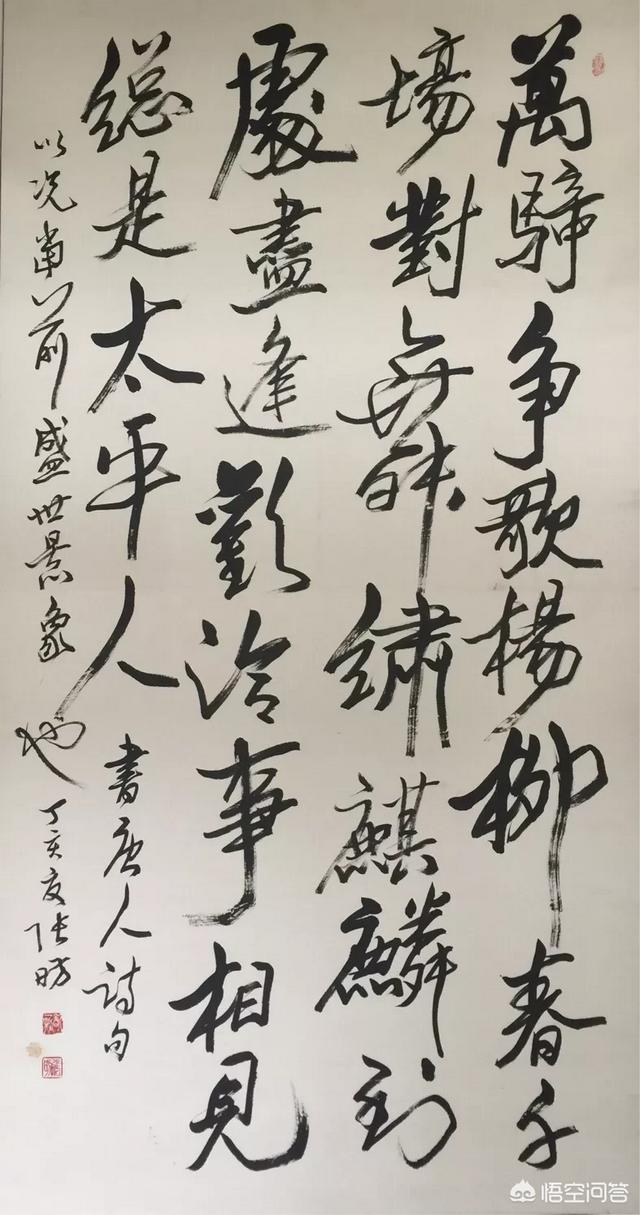 萬騎争歌楊柳春千
場對舞繡麒麟到
處盡逢歡洽事相見
總是太平人
書唐人詩句
以况當前盛世景象也丁亥夏张昉
悟空问答